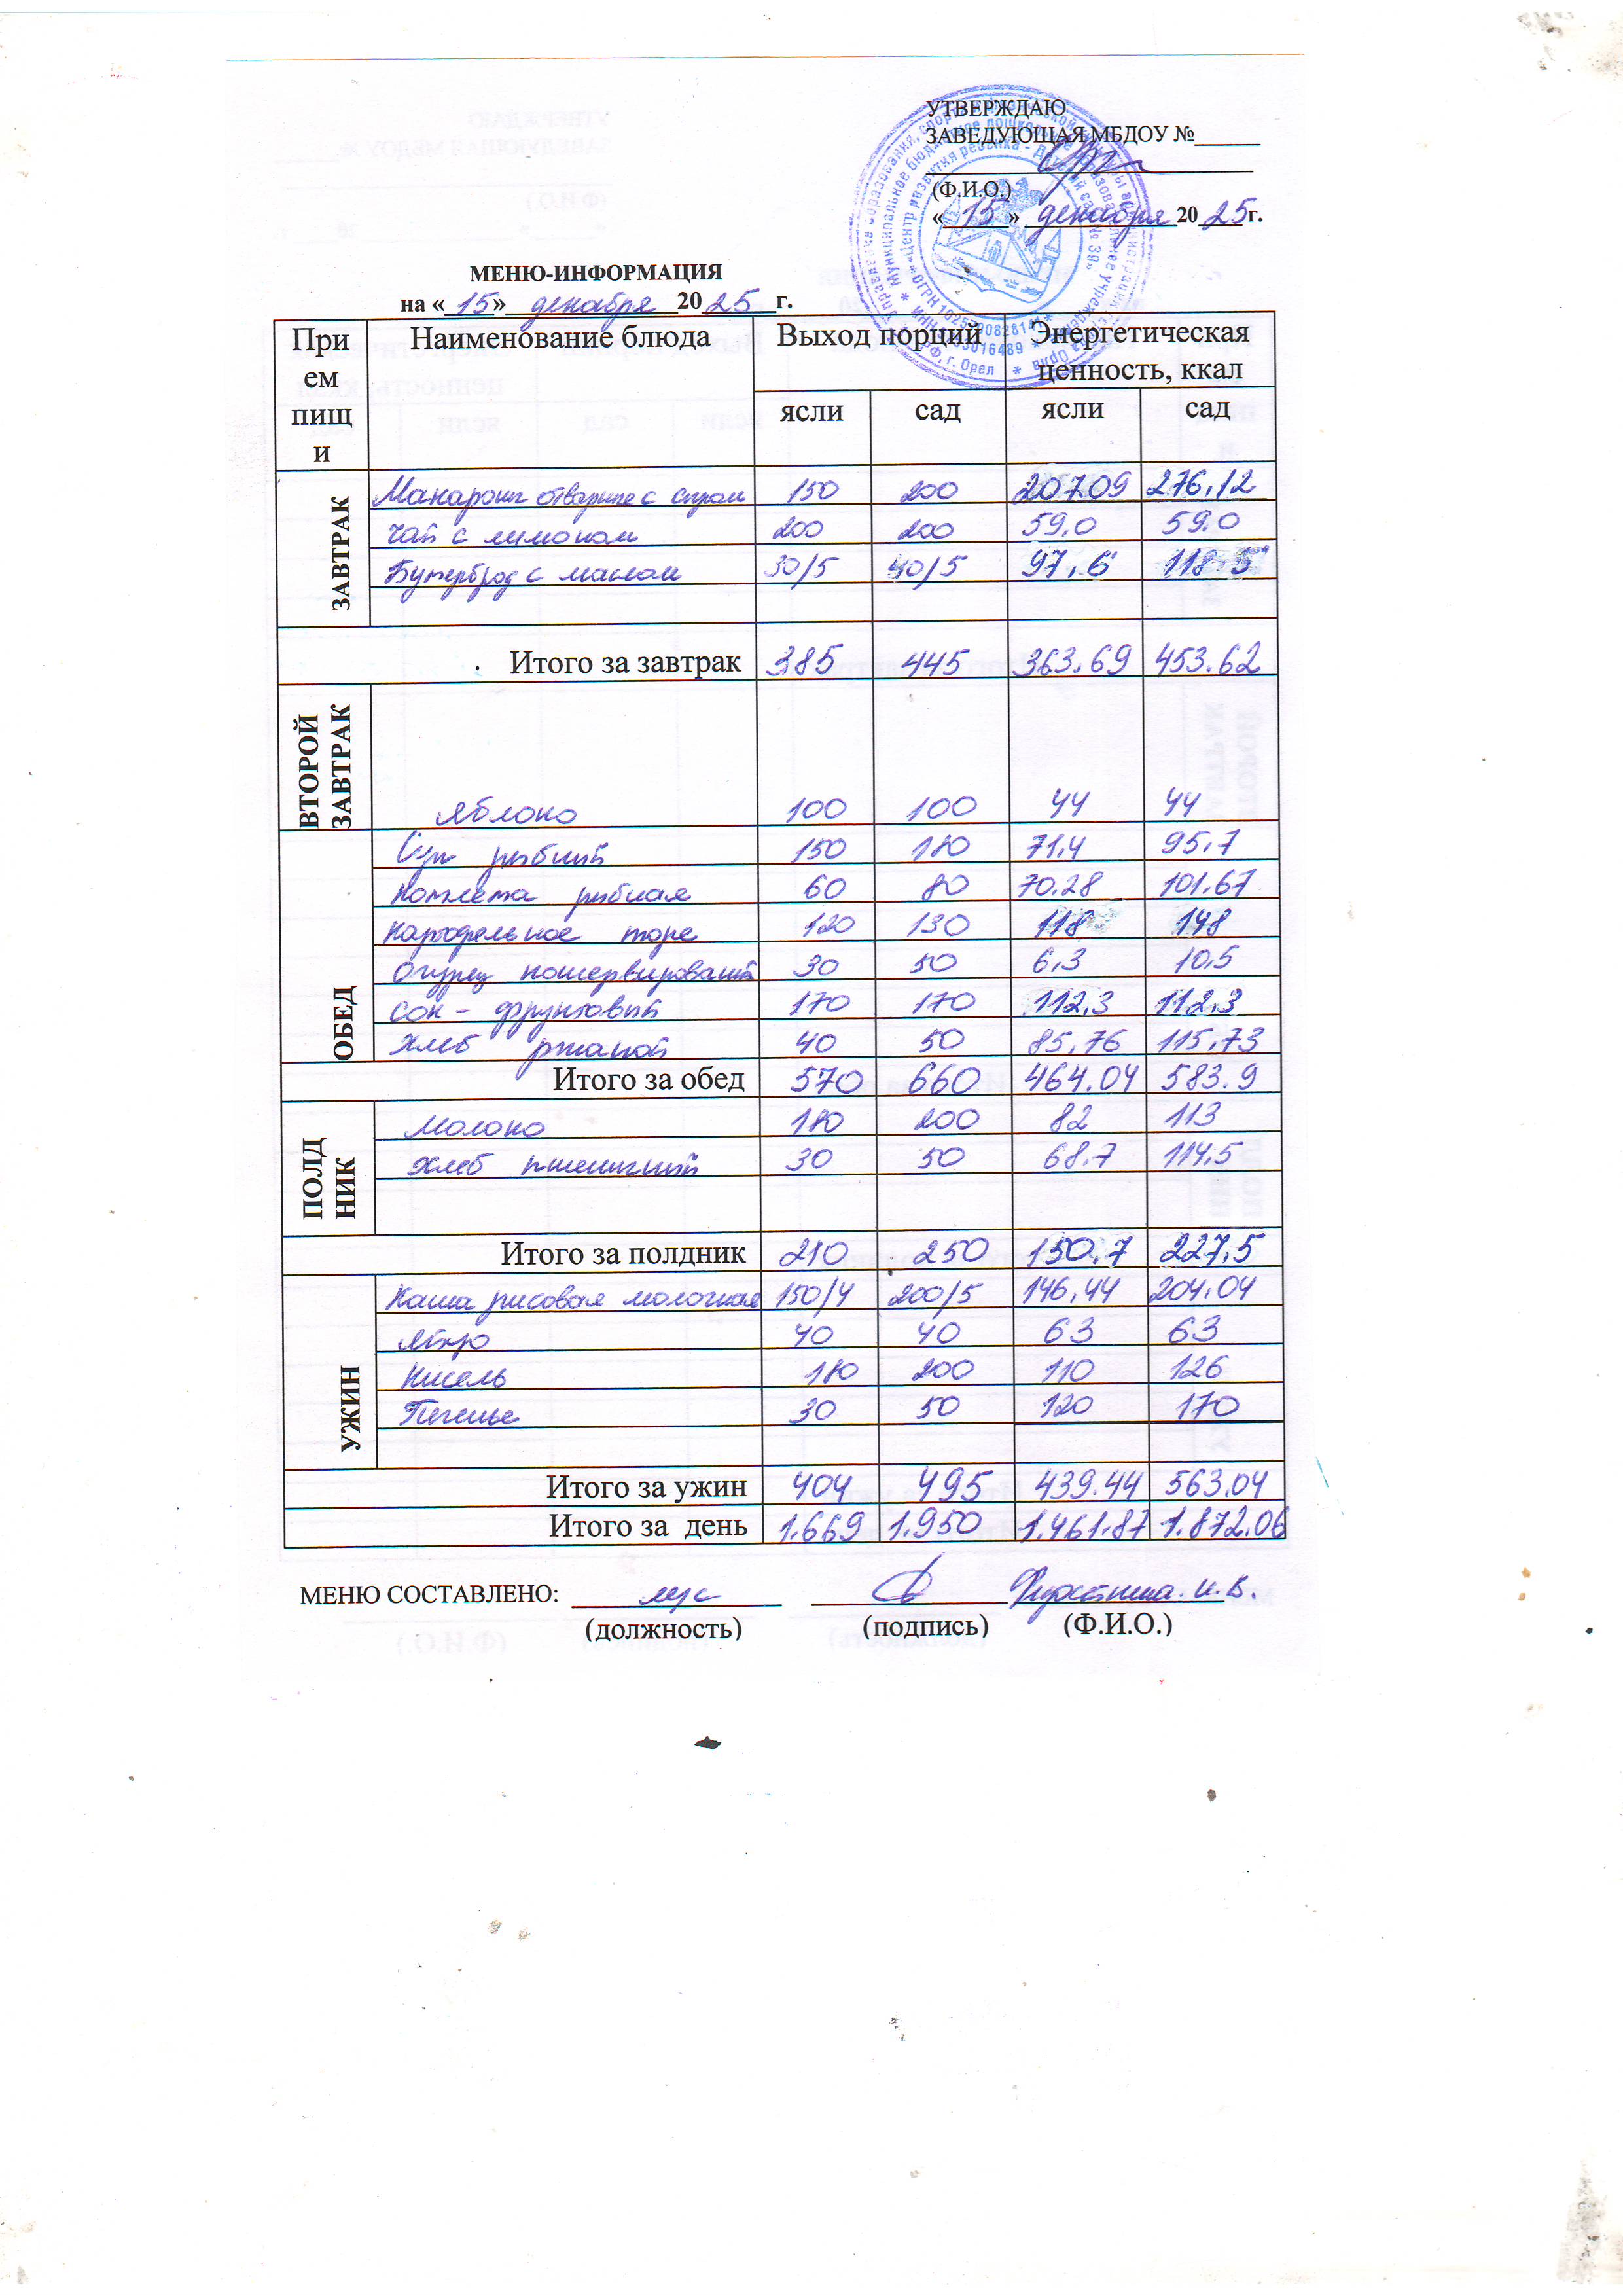 УТВЕРЖДАЮ
ЗАВЕДУЮЩАЯ МБДОУ №
(Ф.И.О.)
«15» декабря 2025г.
МЕНЮ-ИНФОРМАЦИЯ
на «15» декабря 2025 г.
Прием пищи Наименование блюда Выход порций Энергетическая ценность, ккал
ясли сад ясли сад
ЗАВТРАК
Макароны отварные с сыром 150 200 207.09 276,12
Чай с лимоном 200 200 59,0 59,0
Бутерброд с маслом 30/5 40/5 97,6 118.5
Итого за завтрак 385 445 363.69 453.62
ВТОРОЙ ЗАВТРАК
Яблоко 100 100 44 44
ОБЕД
Суп рыбный 150 180 71,4 95,7
Котлета рыбная 60 80 70.28 101.67
Картофельное пюре 120 130 118 148
Огурец консервированный 30 50 6,3 10,5
Сок - фруктовый 170 170 112,3 112,3
Хлеб ржаной 40 50 85,76 115,73
Итого за обед 570 660 464.04 583.9
ПОЛДНИК
Молоко 180 200 82 113
Хлеб пшеничный 30 50 68.7 114.5
Итого за полдник 210 250 150,7 227,5
УЖИН
Каша рисовая молочная 150/4 200/5 146,44 204.04
Яйцо 40 40 63 63
Кисель 180 200 110 126
Печенье 30 50 120 170
Итого за ужин 404 495 439.44 563.04
Итого за день 1.669 1.950 1.461.87 1.872.06
МЕНЮ СОСТАВЛЕНО: м/с И.В.
(должность) (подпись) (Ф.И.О.)